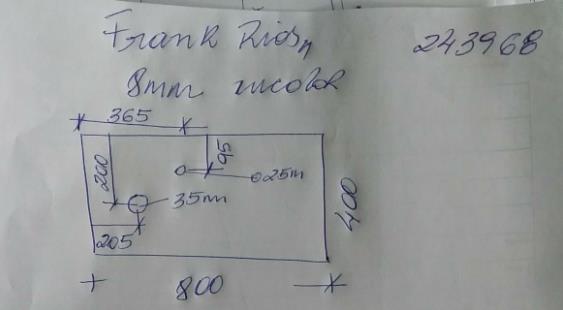 Frank Rios 243968
8mm incolor
365
95
200
ø25m
35m
400
205
800